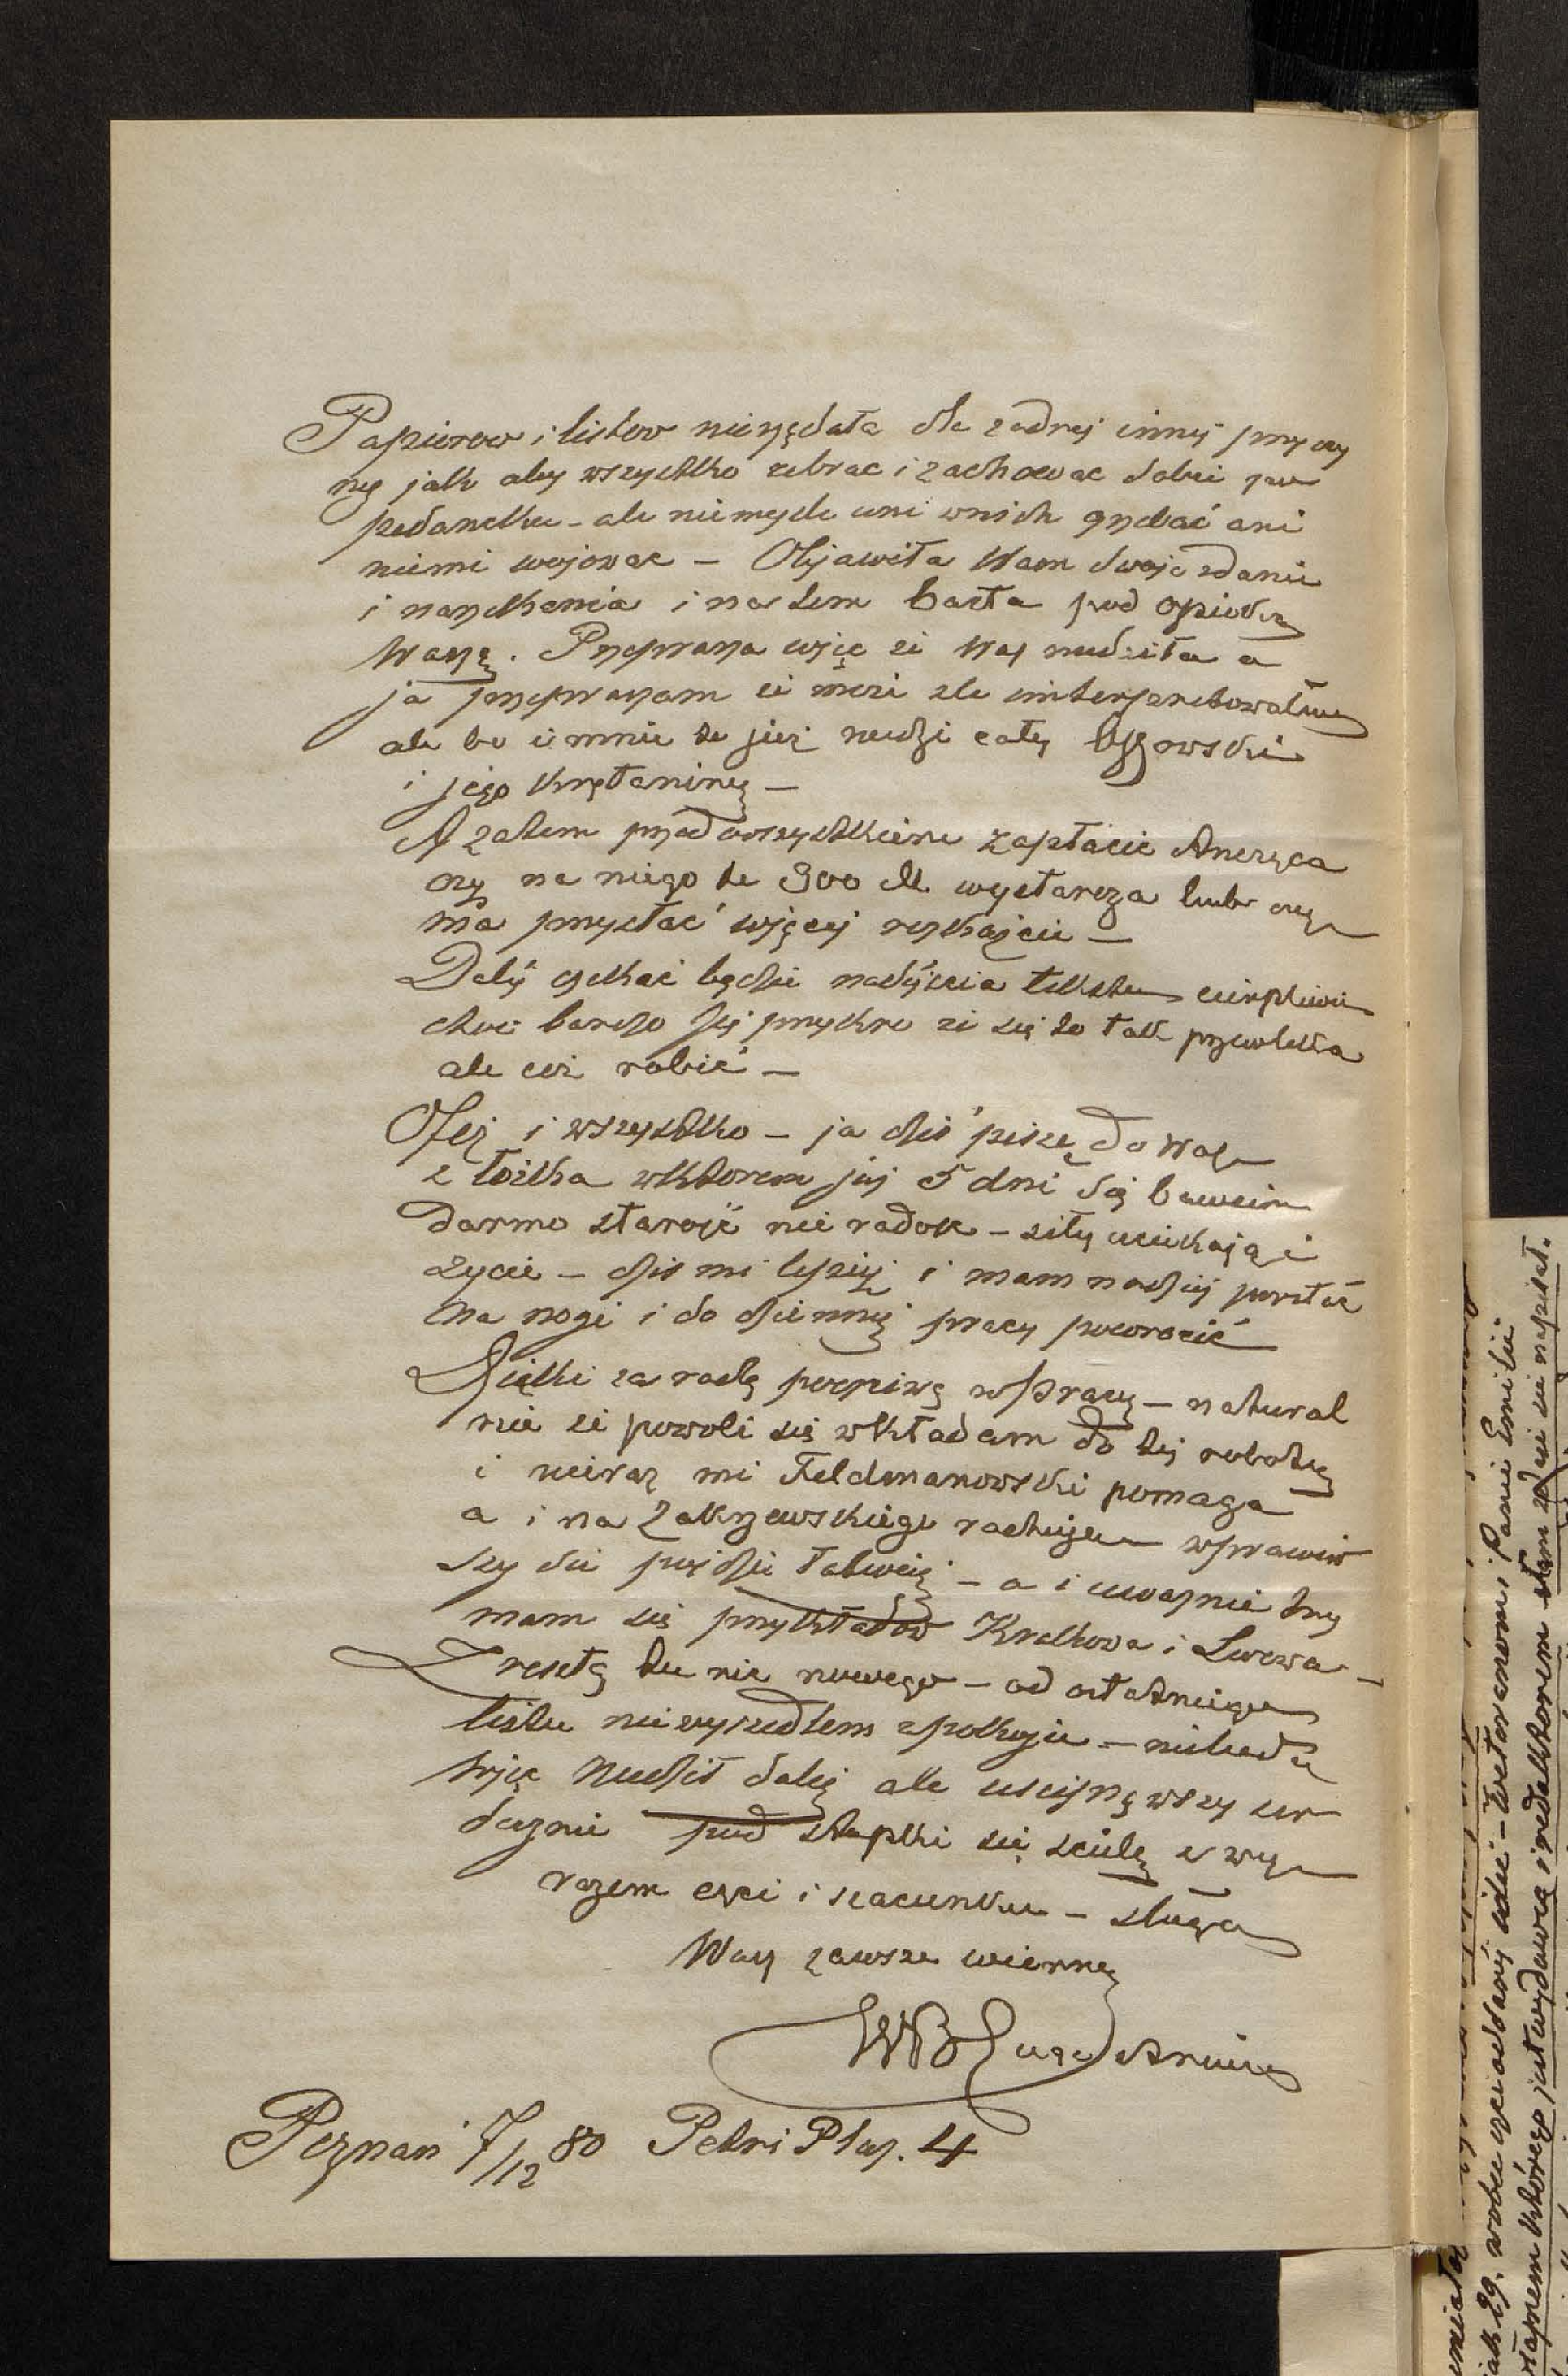 Papierow i listow nieżądała dla żadnej innej przyczy
ny jak aby wszystko zebrac i zachowac sobie
ale niemyśle ani wnich grzebać ani
niemi wojowac – Objawiła Wam swoje zdanie
i narzekania i na tem basta pod opieką
Waszą. Przeprasza więc że Was nudziła a
ja przepraszam że może zle interpretowałem
ale bo i mnie to już nudzi cały
i jego krętaniny –
A zatem przedwszystkiem zapłacic
czy na niego te 900 M. wystarcza lub czy
ma przysłać więcej
Dalej czekać będzie nadejscia tekstu cierpliwie
choc bardzo jej przykro ze się to tak przewleka
ale coż robić –
Otoż i wszystko – ja dziś piszę do Was
z łożka wktorem już 5 dni się bawiem
darmo starość nie radość – siły uciekają i
życie – dzis mi lepiej i mam nadzieję powstać
na nogi i do dziennej pracy powrocić
Dzięki za radę poczciwą wsprawę – natural
nie że powoli się wkładam do tej roboty
i nieraz mi Feldmanowski pomaga
a i na Zakrzewskiego rachuję – wprawiw
szy się pojdzie łatwiej – a i uważnie trzy
mam się przykładow Krakowa i Lwowa –
Zresztą tu nic nowego – od ostatniego
listu niewyszedłem zpokoju – niebędę
więc nudził dalej ale uscisnąwszy ser
decznie pod stopki się scielę z wy
razem czci i szacunku – sługa
Wasz zawsze wierny
Poznan 7/12 80 Petri Plaz. 4